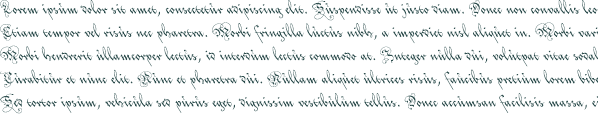 Lorem ipsum dolor sit amet, consectetur adipiscing elit. Suspendisse ut justo diam. Donec non convallis leo
Etiam tempor vel risus nec pharetra. Morbi fringilla luctus nibh, a imperdiet nisl aliquet in. Morbi vari
Morbi hendrerit ullamcorper lectus, id interdum lectus commodo at. Integer nulla dui, volutpat vitae sodal
Curabitur et nunc elit. Nunc et pharetra dui. Nullam aliquet ultrices risus, faucibus pretium lorem bibe
Sed tortor ipsum, vehicula sed purus eget, dignissim vestibulum tellus. Donec accumsan facilisis massa, e